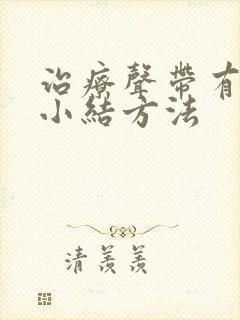 治療聲帶有
小結方法
清羨羨